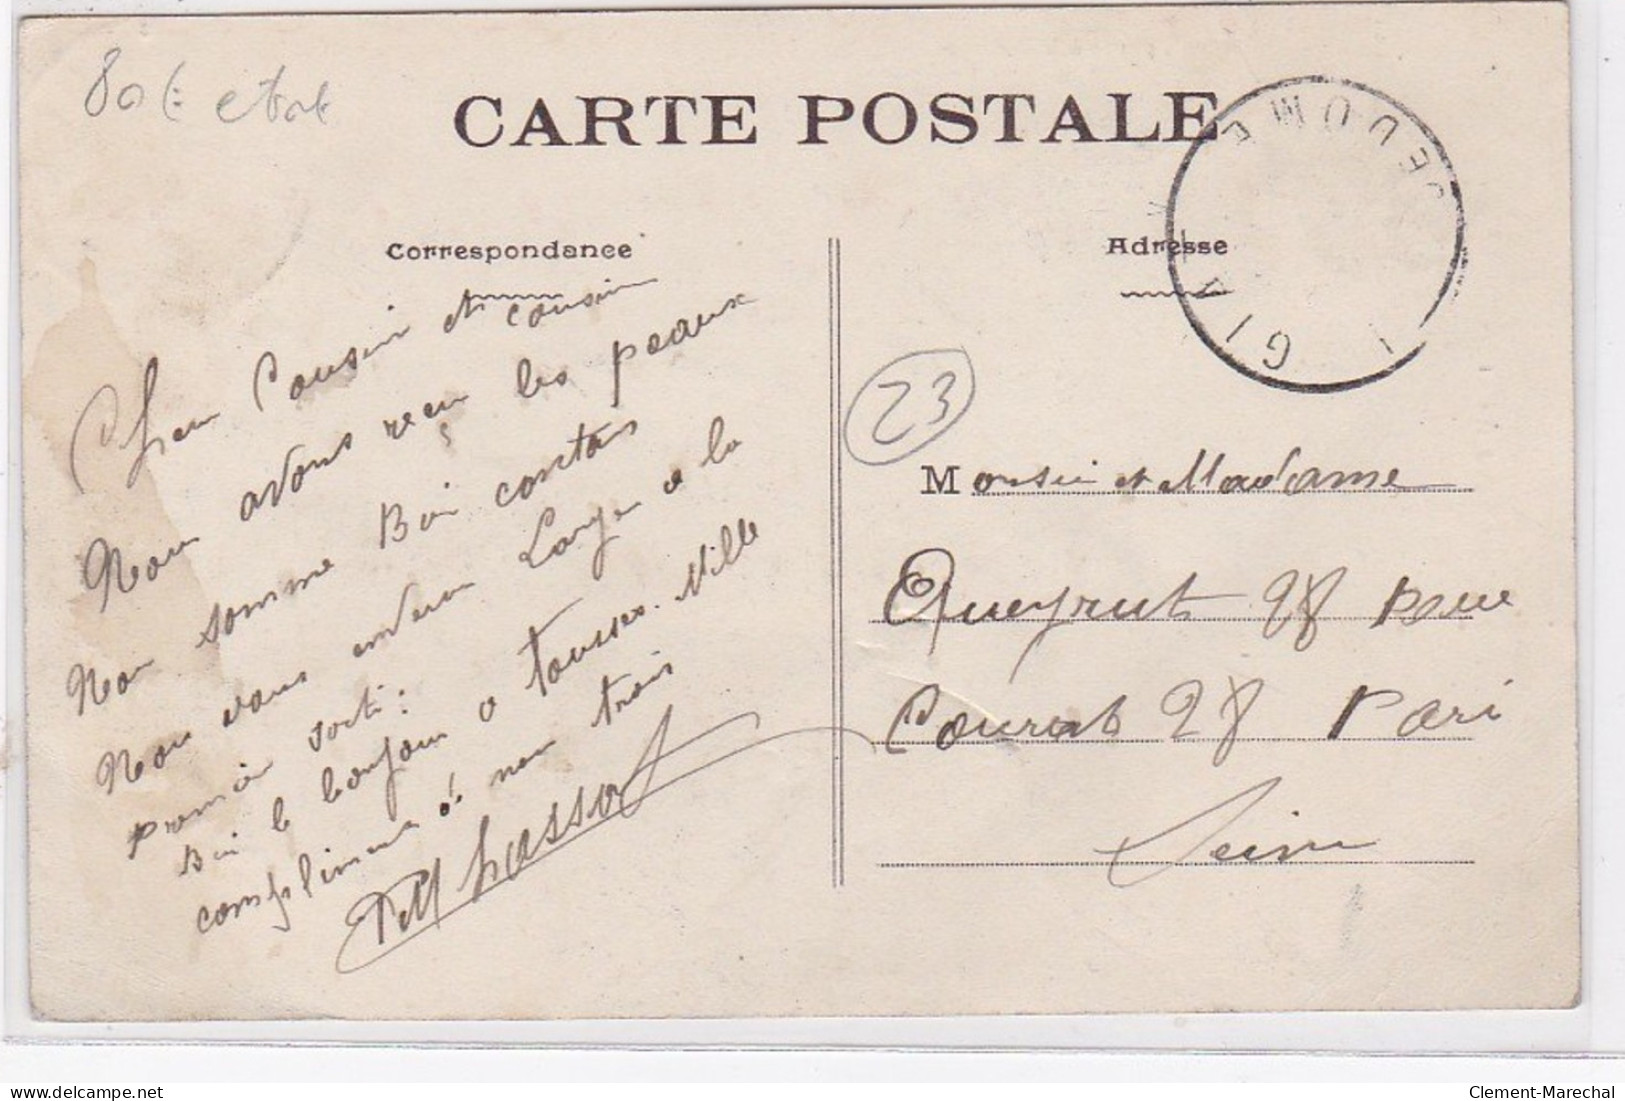 80€
CARTE POSTALE
Correspondance
Adresse
Cher Cousin et cousine
Nous avons reçu les peaux
Nou somme Bien contans
Nou vous enveron Largen a la
promier sorti:
Bien le bonjour a tousses. Mille
compliments de nou trois
23
Monsieu et Madame
Queyrut 28 Rue
Courat 28 Pari
Seine
Clement-Marechal